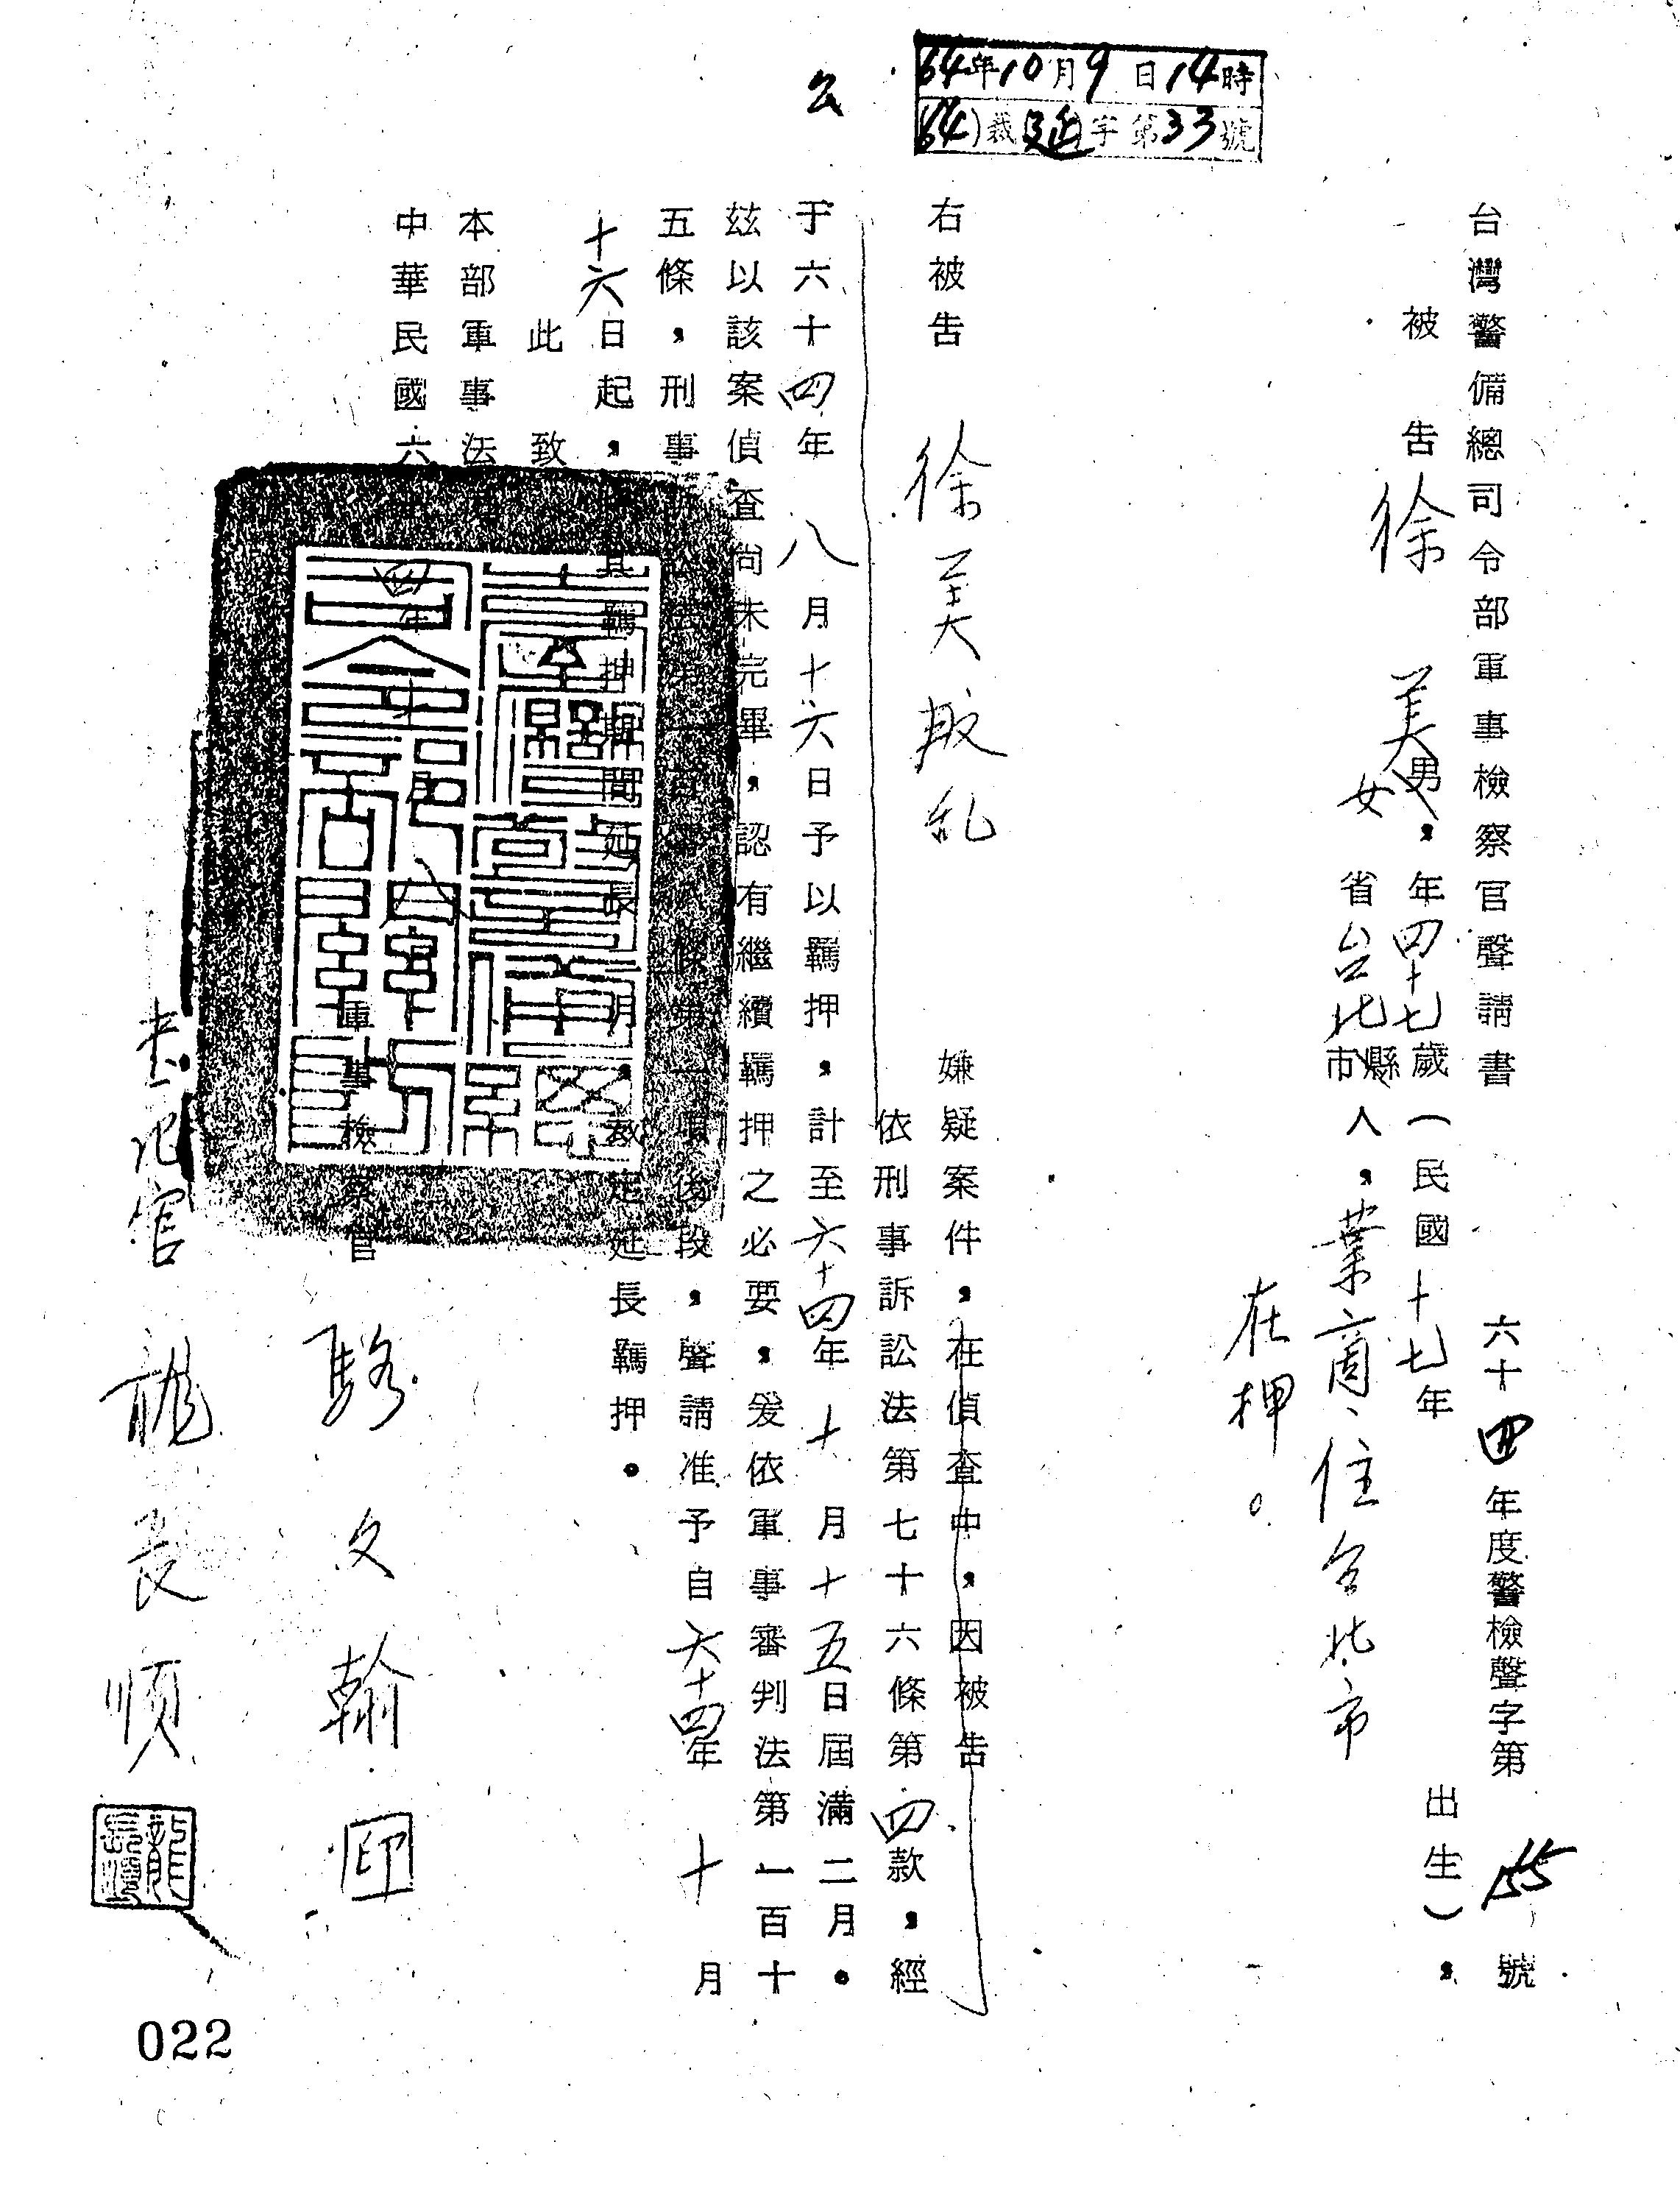 64年10月9日14時
64)裁(延)字第33號
台灣警備總司令部軍事檢察官聲請書
六十四年度警檢聲字第155號
被告徐美男女,年四十七歲(民國十七年出生),
省台北縣市人,業商、住台北市
在押。
右被告 徐美 叛乱 嫌疑案件,在偵查中,因被告
依刑事訴訟法第七十六條第四款,經
于六十四年八月十六日予以羈押,計至六十四年十月十五日屆滿二月。
茲以該案偵查尚未完畢,認有繼續羈押之必要,爰依軍事審判法第一百十
五條,刑事訴訟法第一百零八條第一項後段,聲請准予自六十四年十月
十六日起,其羈押期間延長二月,裁定延長羈押。
此致
本部軍事法
中華民國六十四年十月八
軍事檢察官 駱文翰 印
書記官 龍長順
龍長順
022